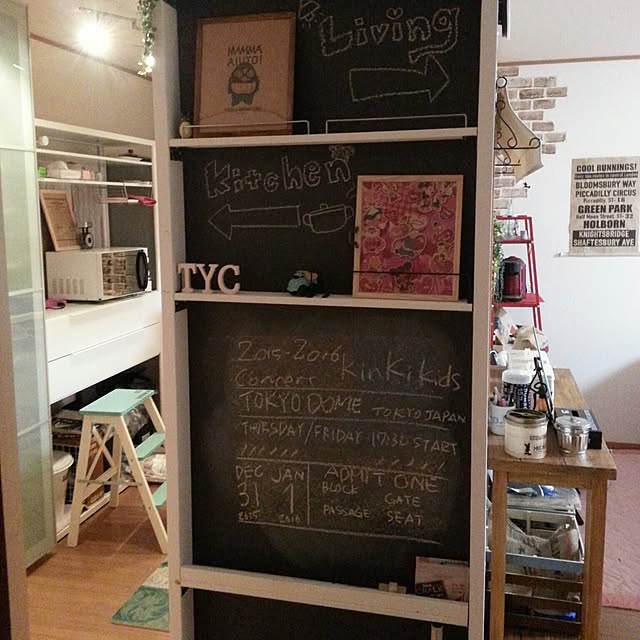 MAMMA
AIUTO!
Living
Kitchen
TYC
2015-2016 KinKi Kids
Concert
TOKYO DOME TOKYO JAPAN
THURSDAY/FRIDAY 17:30 START
DEC JAN
31 1
2015 2016
ADMIT ONE
BLOCK
GATE
PASSAGE SEAT
COOL RUNNINGS!
BLOOMSBURY WAY
PICCADILLY CIRCUS
Piccadilly St. 16
GREEN PARK
Half Moon Street
HOLBORN
KNIGHTSBRIDGE
SHAFTESBURY AVE